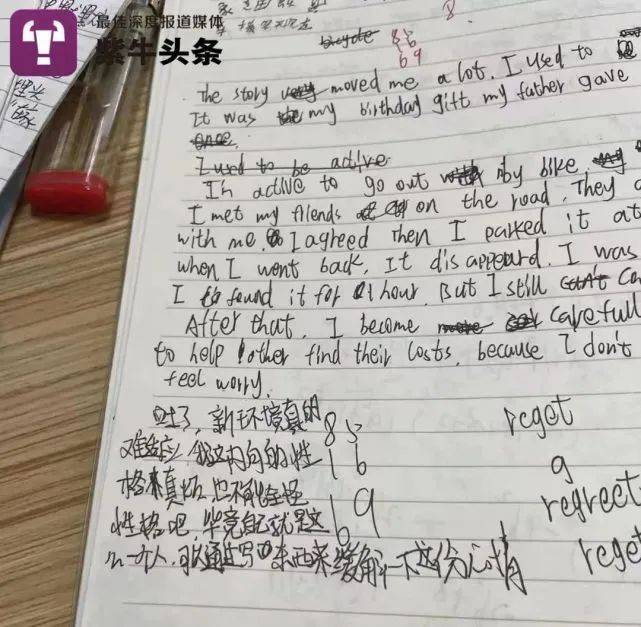 最佳深度报道媒体
紫牛头条
bicycle 8
The story moved me a lot. I used to be
It was my birthday gift my father gave
I used to be active
In active to go out by bike.
I met my friends on the road. They
with me. I agreed Then I parked it at
when I went back. It disappeard. I was
I found it for 1 hour. But I still can't
After that. I become more carefull
to help other find their losts. because I don't
feel worry.
吐了,新环境真的 85 reget
难适应,我这内向的性 16 g
格真坏,也不能全怪 19 regrect
性格吧,毕竟自己就是这 6 reget
么一个人,可以通过写东西来缓解一下这份心情